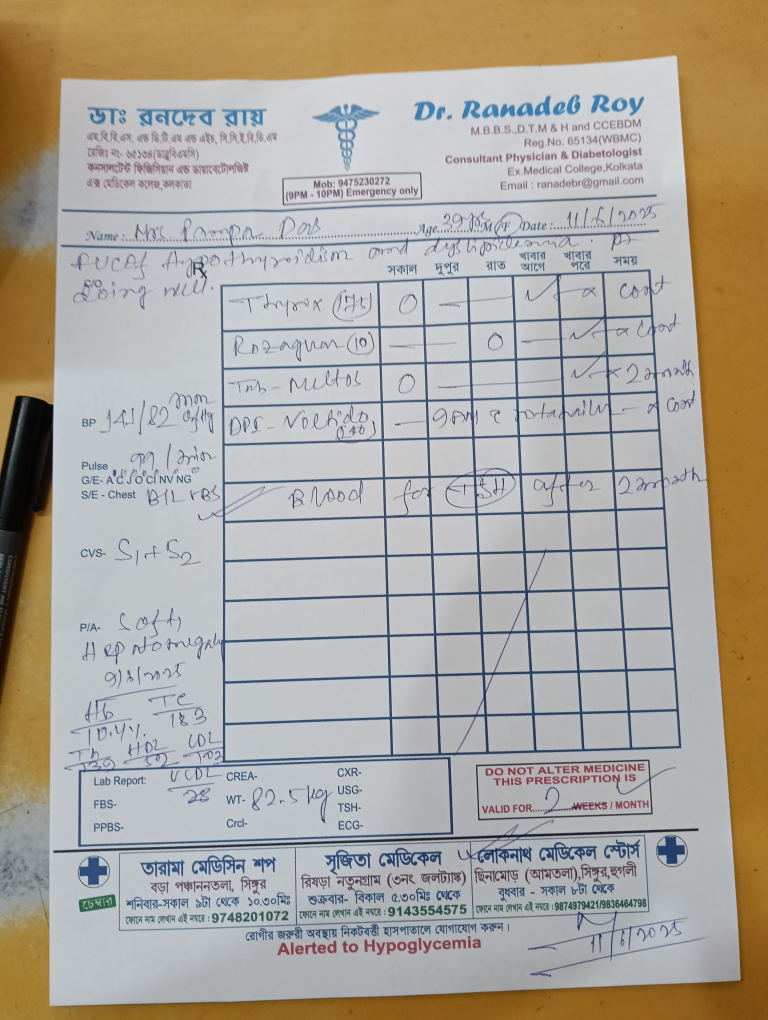 ডাঃ রনদেব রায়
এম.বি.বি.এস, এন্ড ডি.টি.এম এন্ড এইচ, সি.সি.ই.বি.ডি.এম
রেজিঃ নং- ৬৫১৩৪(ডাব্লুবিএমসি)
কনসালটেন্ট ফিজিসিয়ান এন্ড ডায়াবেটোলজিষ্ট
এক্স মেডিকেল কলেজ,কলকাতা
Mob: 9475230272
(9PM - 10PM) Emergency only
Dr. Ranadeb Roy
M.B.B.S.,D.T.M & H and CCEBDM
Reg.No. 65134(WBMC)
Consultant Physician & Diabetologist
Ex.Medical College,Kolkata
Email : ranadebr@gmail.com
Name : Mrs Pampa Das Age 39 yrs M/F Date : 11/6/2025
Hypothyroidism and dyslipidemia. Pt
doing well.
Rx
সকাল দুপুর রাত খাবার আগে খাবার পরে সময়
Thyrox (175) O — ✓ — x cont
(10) — O — ✓ — x cont
Tab - O — ✓ — x 2 month
— 9AM — x cont
Blood for TSH after 2 month
BP 141/82 mm of Hg
Pulse 99/min
G/E- A C J O CI NV NG
S/E - Chest B/L VBS
CVS- S1 + S2
P/A- Soft,
Hepatomegaly
9/6/2025
Hb 10.4%
TC 183
HDL 52
LDL
Lab Report: VLDL 28
CREA-
CXR-
FBS-
WT- 82.5 kg
USG-
TSH-
PPBS-
Crcl-
ECG-
DO NOT ALTER MEDICINE
THIS PRESCRIPTION IS
VALID FOR......2......WEEKS / MONTH
চেম্বার
তারামা মেডিসিন শপ
বড়া পঞ্চাননতলা, সিঙ্গুর
শনিবার-সকাল ৯টা থেকে ১০.৩০মিঃ
ফোনে নাম লেখান এই নম্বরে : 9748201072
সৃজিতা মেডিকেল
রিষড়া নতুনগ্রাম (৩নং জলট্যাঙ্ক)
শুক্রবার- বিকাল ৫.৩০মিঃ থেকে
ফোনে নাম লেখান এই নম্বরে : 9143554575
লোকনাথ মেডিকেল স্টোর্স
ছিনামোড় (আমতলা),সিঙ্গুর,হুগলী
বুধবার - সকাল ৮টা থেকে
ফোনে নাম লেখান এই নম্বরে : 9874979421/9836464798
রোগীর জরুরী অবস্থায় নিকটবর্তী হাসপাতালে যোগাযোগ করুন।
Alerted to Hypoglycemia
11/6/2025